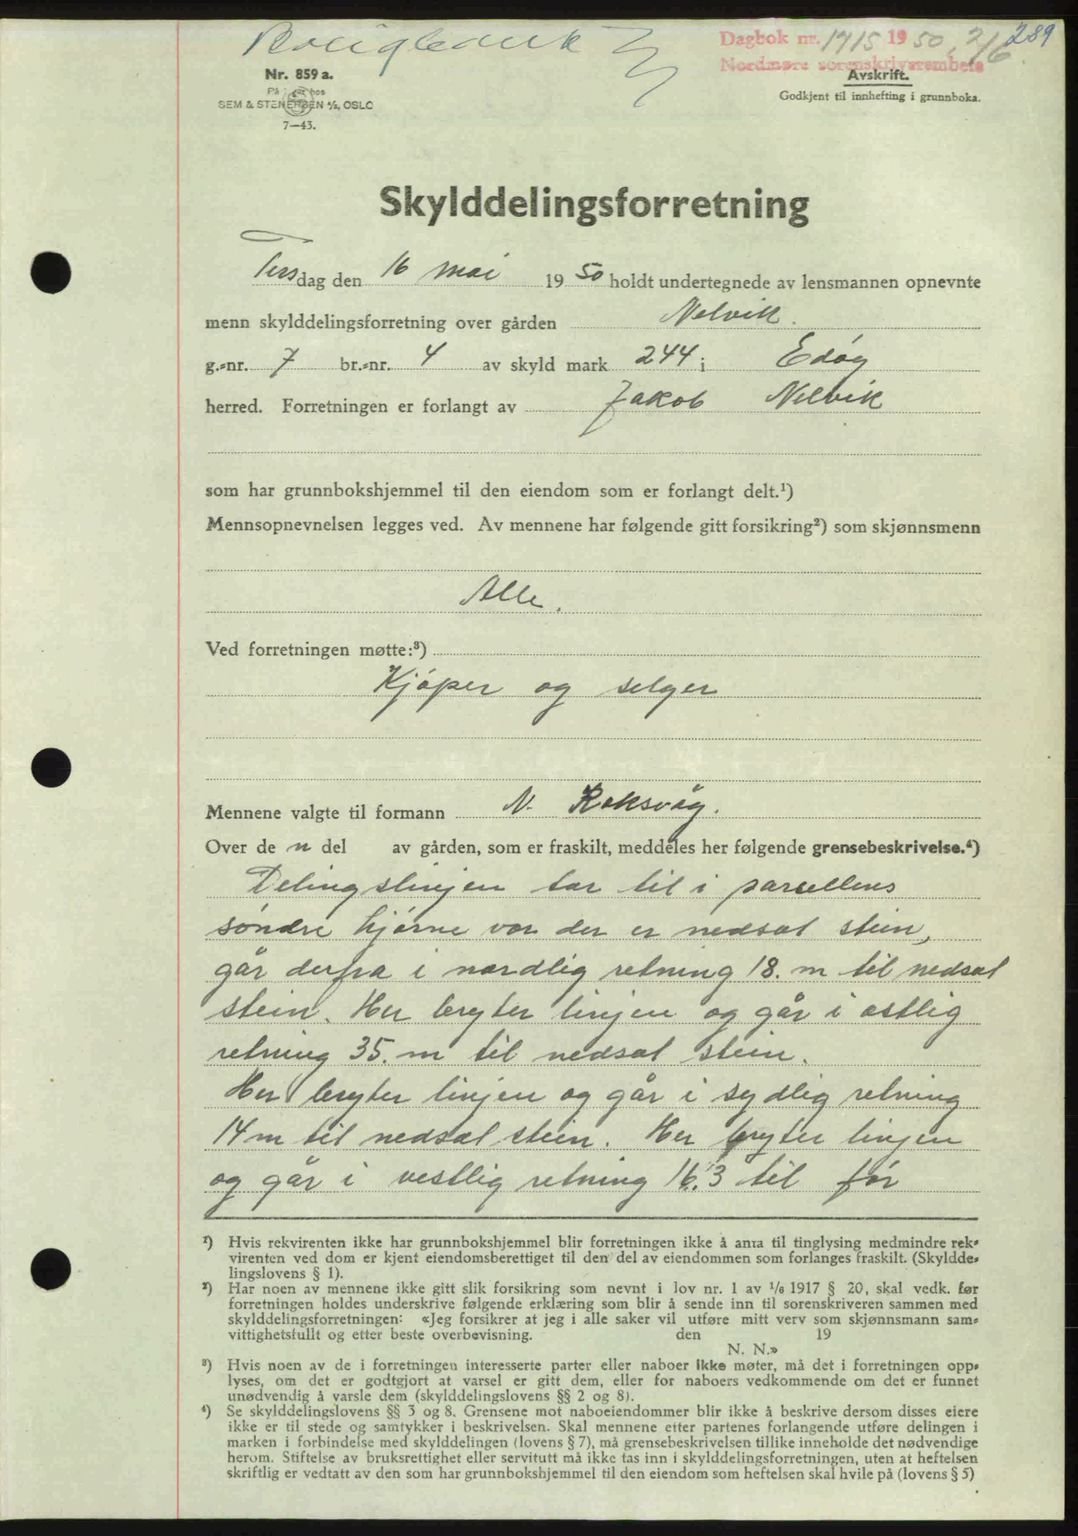 Boligbank
Dagbok nr. 1715 1950, 2/6 289
Nordmøre sorenskriverembete
Nr. 859 a.
Avskrift.
På lager hos
Godkjent til innhefting i grunnboka.
SEM & STENERSEN A/S, OSLO
7—43.
Skylddelingsforretning
Tirsdag den 16 mai 1950 holdt undertegnede av lensmannen opnevnte
menn skylddelingsforretning over gården Nelvik.
g.-nr. 7 br.-nr. 4 av skyld mark 244 i Edøy
herred. Forretningen er forlangt av Jakob Nelvik
som har grunnbokshjemmel til den eiendom som er forlangt delt.¹)
Mennsopnevnelsen legges ved. Av mennene har følgende gitt forsikring²) som skjønnsmenn
Alle.
Ved forretningen møtte:³)
Kjøper og selger
Mennene valgte til formann N. Roksvåg.
Over de n del av gården, som er fraskilt, meddeles her følgende grensebeskrivelse.⁴)
Delingslinjen tar til i parsellens
søndre hjørne vor der er nedsat stein,
går derfra i nordlig retning 18. m til nedsat
stein. Her bryter linjen og går i østlig
retning 35. m til nedsat stein.
Her bryter linjen og går i sydlig retning
14 m til nedsat stein. Her bryter linjen
og går i vestlig retning 16.3 til før
¹) Hvis rekvirenten ikke har grunnbokshjemmel blir forretningen ikke å anta til tinglysing medmindre rek-
virenten ved dom er kjent eiendomsberettiget til den del av eiendommen som forlanges fraskilt. (Skyldde-
lingslovens § 1).
²) Har noen av mennene ikke gitt slik forsikring som nevnt i lov nr. 1 av ¹/₆ 1917 § 20, skal vedk. før
forretningen holdes underskrive følgende erklæring som blir å sende inn til sorenskriveren sammen med
skylddelingsforretningen: «Jeg forsikrer at jeg i alle saker vil utføre mitt verv som skjønnsmann sam-
vittighetsfullt og etter beste overbevisning. den 19
N. N.»
³) Hvis noen av de i forretningen interesserte parter eller naboer ikke møter, må det i forretningen opp-
lyses, om det er godtgjort at varsel er gitt dem, eller for naboers vedkommende om det er funnet
unødvendig å varsle dem (skylddelingslovens §§ 2 og 8).
⁴) Se skylddelingslovens §§ 3 og 8. Grensene mot naboeiendommer blir ikke å beskrive dersom disses eiere
ikke er til stede og samtykker i beskrivelsen. Skal mennene etter partenes forlangende utføre delingen i
marken i forbindelse med skylddelingen (lovens § 7), må grensebeskrivelsen tillike inneholde det nødvendige
herom. Stiftelse av bruksrettighet eller servitutt må ikke tas inn i skylddelingsforretningen, uten at heftelsen
skriftlig er vedtatt av den som har grunnbokshjemmel til den eiendom som heftelsen skal hvile på (lovens § 5)